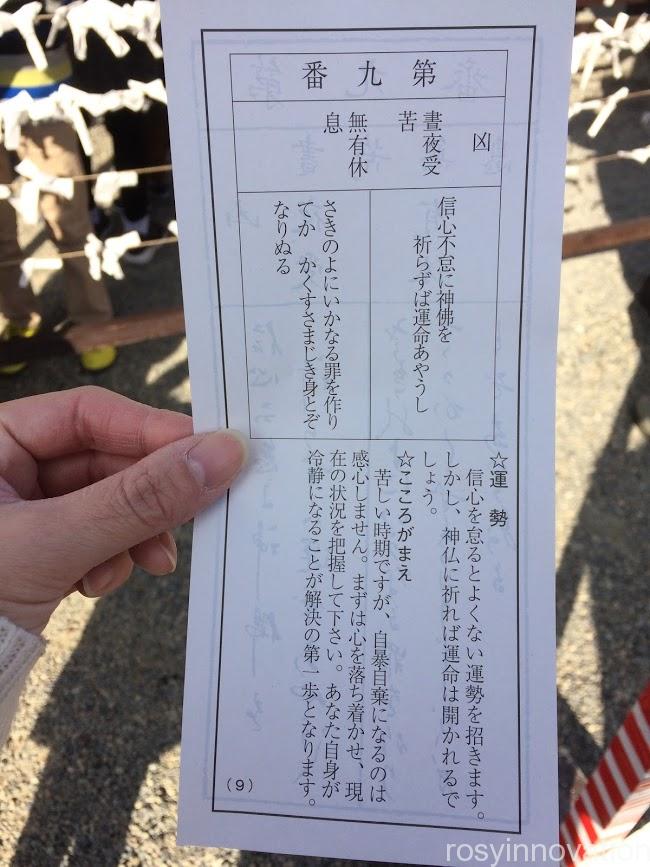 第九番
凶
晝夜受
苦
無有休
息
信心不怠に神佛を
祈らずば運命あやうし
さきのよにいかなる罪を作り
てか かくすさまじき身とぞ
なりぬる
☆運 勢
信心を怠るとよくない運勢を招きます。
しかし、神仏に祈れば運命は開かれるで
しょう。
☆こころがまえ
苦しい時期ですが、自暴自棄になるのは
感心しません。まずは心を落ち着かせ、現
在の状況を把握して下さい。あなた自身が
冷静になることが解決の第一歩となります。
(9)
rosyinnovation